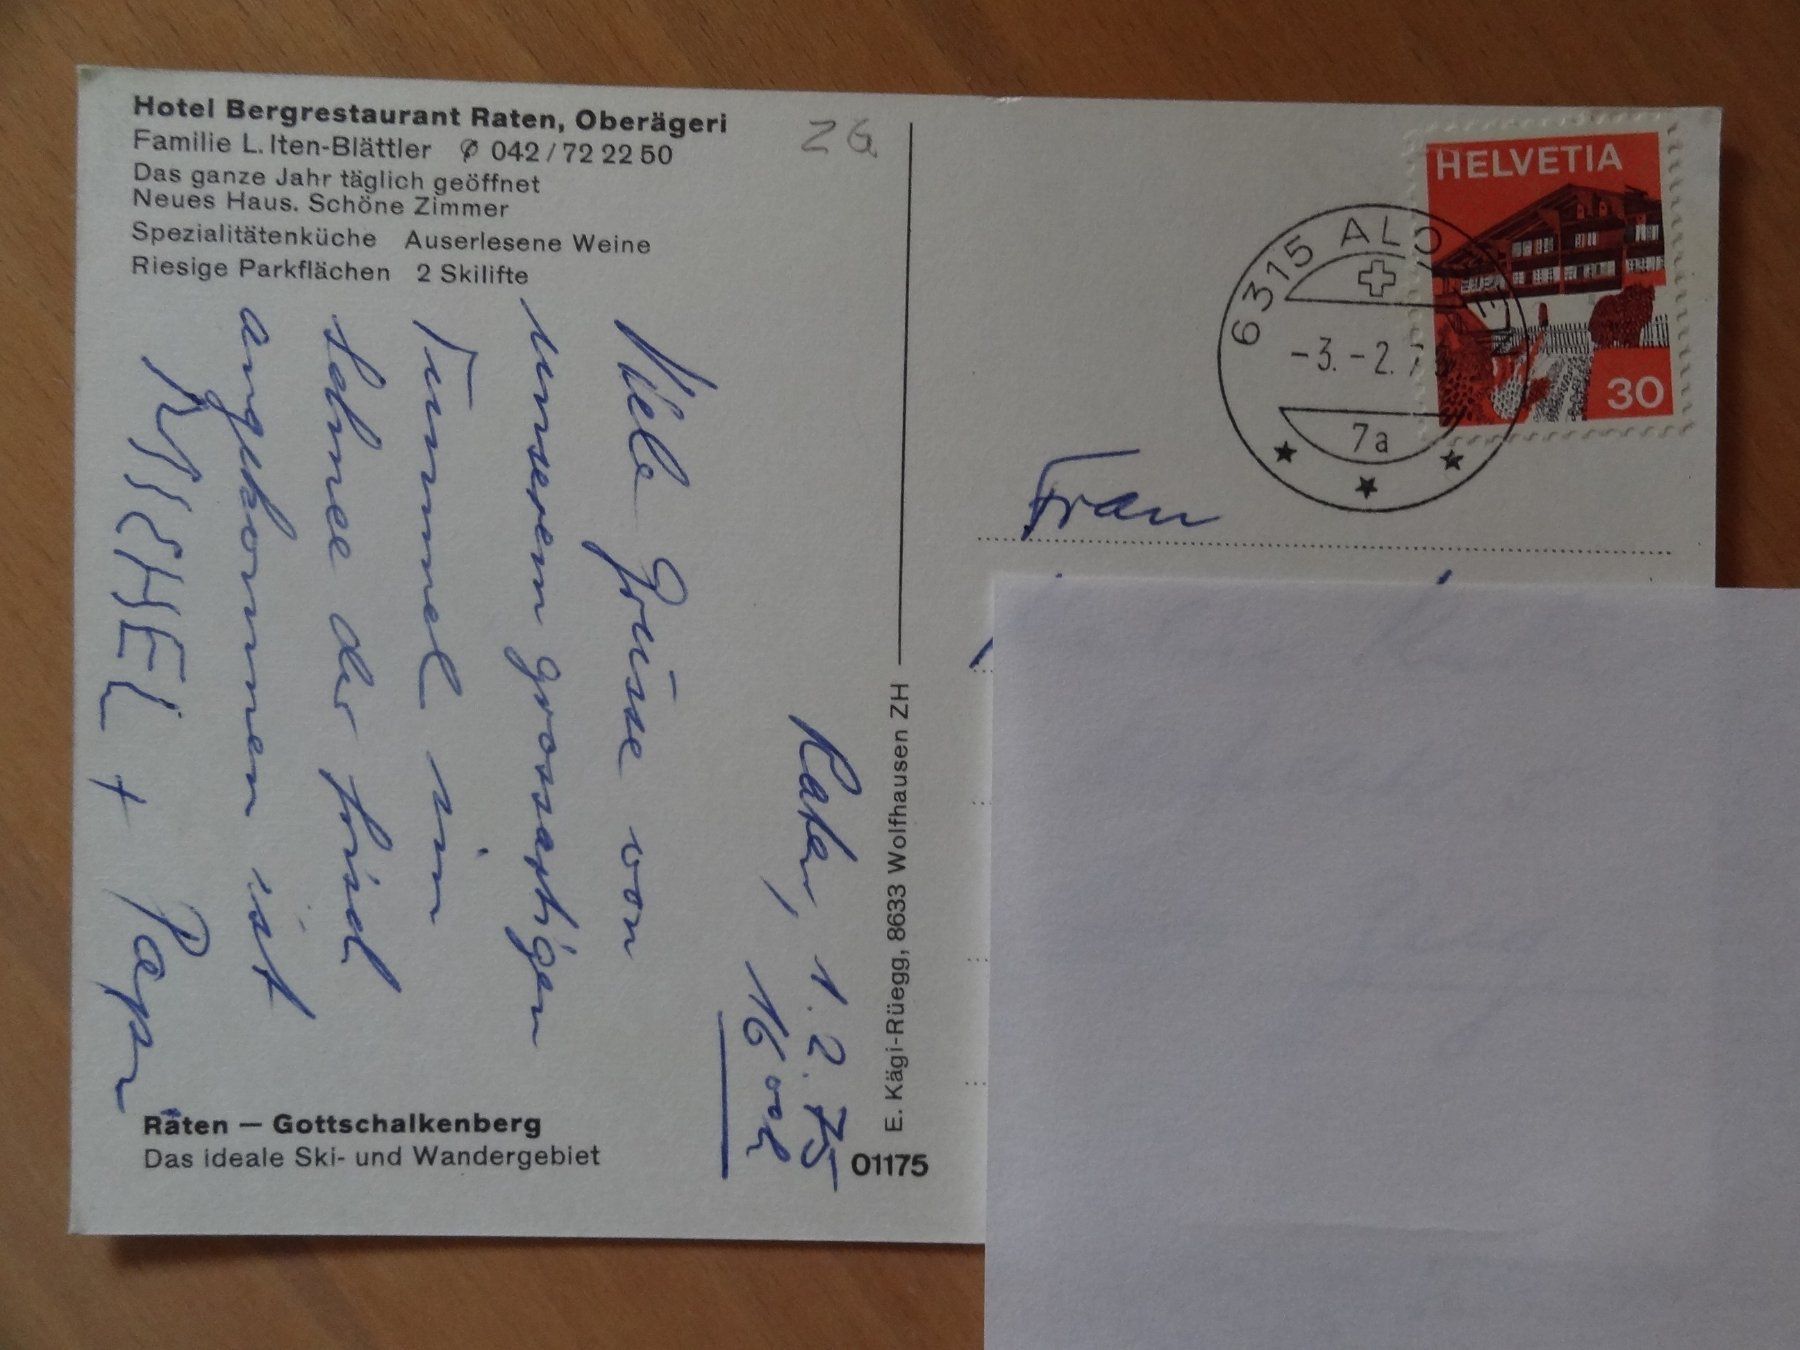 Hotel Bergrestaurant Raten, Oberägeri
Familie L. Iten-Blättler ✆ 042 / 72 22 50
Das ganze Jahr täglich geöffnet
Neues Haus. Schöne Zimmer
Spezialitätenküche Auserlesene Weine
Riesige Parkflächen 2 Skilifte
ZG
Raten, 1.2.75
16
Viele Grüsse von
unserem grossartigen
Tummel im
Schnee der
angekommen ist
MICHEL + Papi
Raten — Gottschalkenberg
Das ideale Ski- und Wandergebiet
E. Kägi-Rüegg, 8633 Wolfhausen ZH
01175
HELVETIA
30
6315 ALO
-3.-2.7
7a
Frau